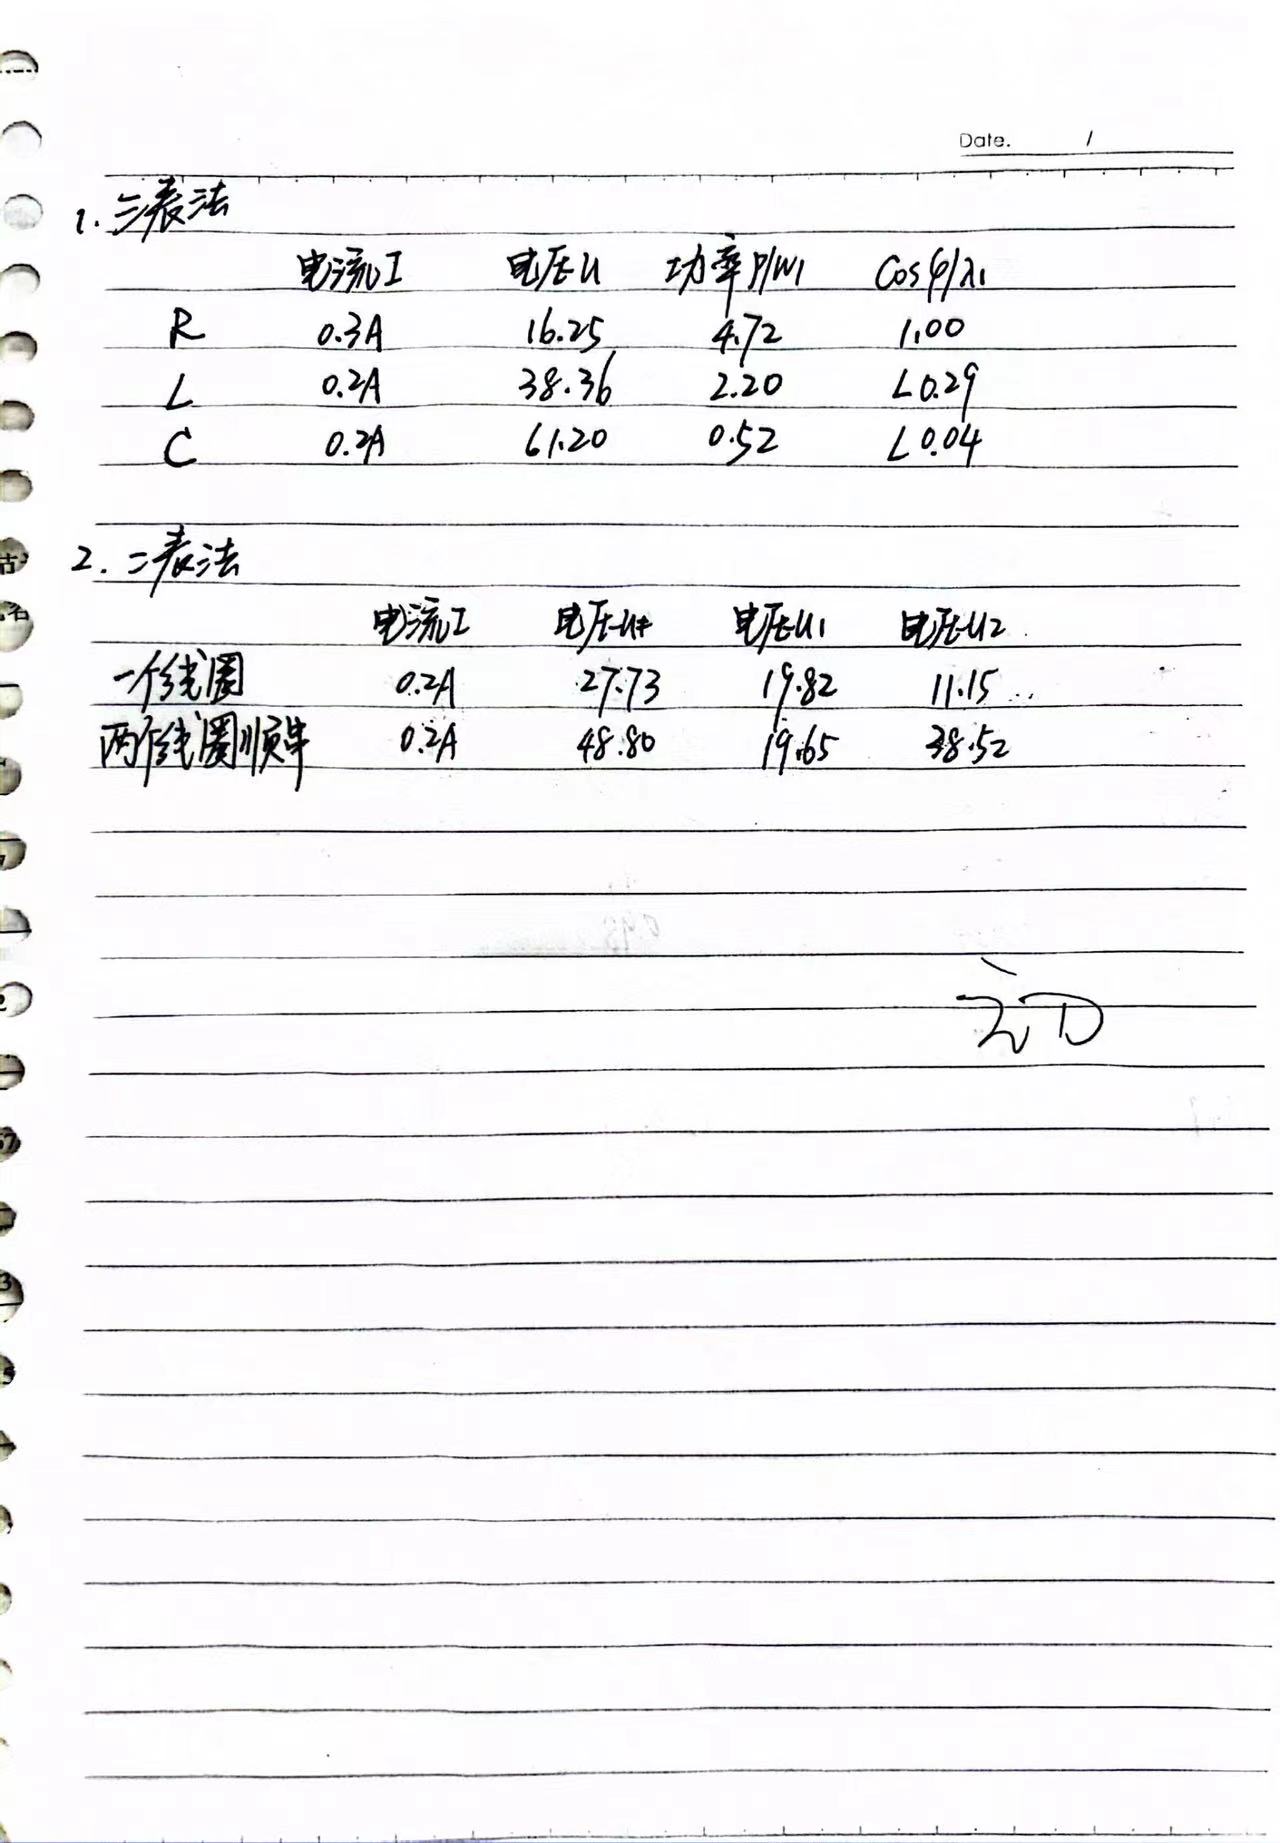 Date. /
1. 三表法
电流I 电压U 功率P/W1 Cosφ/λ1
R 0.3A 16.25 4.72 1.00
L 0.2A 38.36 2.20 L0.29
C 0.2A 61.20 0.52 L0.04
2. 二表法
电流I 电压U 电压U1 电压U2
一个线圈 0.2A 27.73 19.82 11.15
两个线圈顺串 0.2A 48.80 19.65 38.52